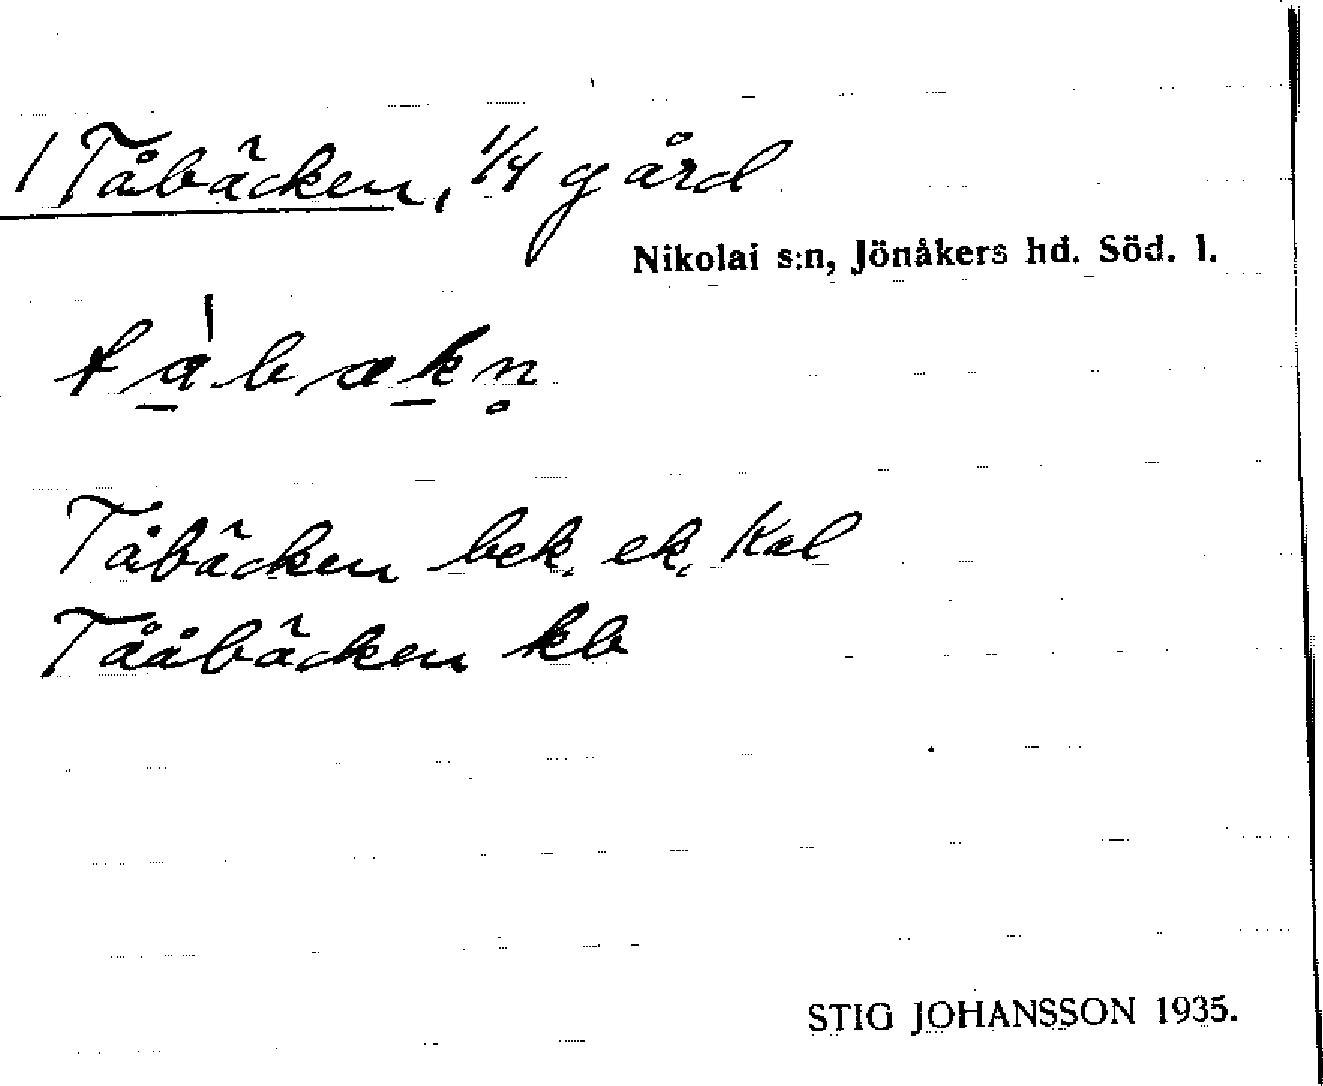 1 Tåbäcken, 1/4 gård
Nikolai s:n, Jönåkers hd. Söd. l.
Tåbäcken bek. ek. Kal
Tååbäcken kb
STIG JOHANSSON 1935.